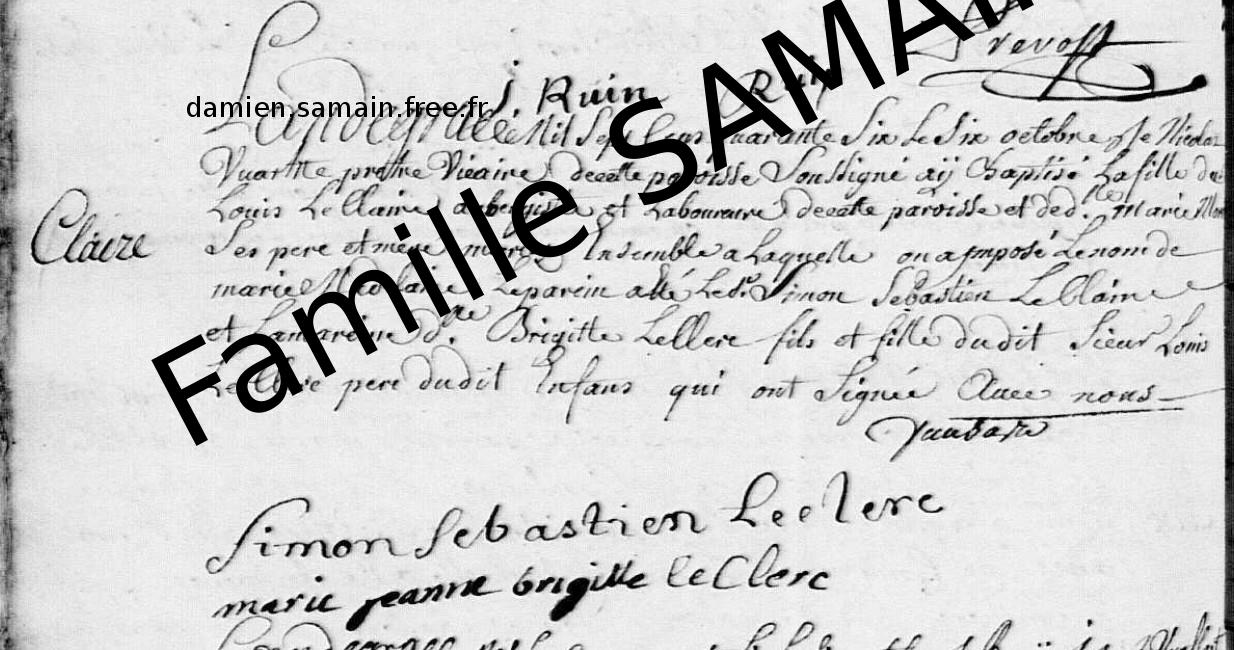 Prevost
J. Ruin Ruin
damien.samain.free.fr
Famille SAMAIN
L'an de grace Mil Sept Cens quarante Six Le Six octobre Je Nicolas
prestre Vicaire de cette paroisse Soussigné aÿ Baptisé La fille de
Louis Le Claire aubergiste et Laboureure de cette paroisse et de d.lle Marie
Claire
Ses pere et mere mariez Ensemble a Laquelle on a Imposé Le nom de
marie Le parein a été Le d. Simon Sebastien Le Claire
et La mareine d.lle Brigitte Leclerc fils et fille dudit Sieur Louis
Le Clere pere dudit Enfans qui ont Signée Avec nous
Simon Sebastien Leclerc
marie jeanne brigitte le Clerc